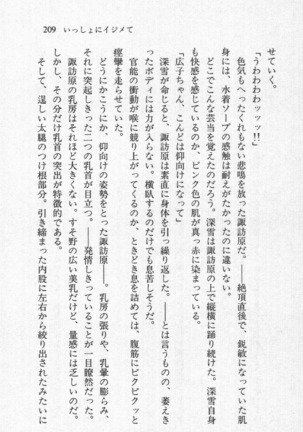 209　いっしょにイジメて
せていく。
「うわわわわッッ!!」
色気もへったくれもない悲鳴を放った諏訪原だ。――絶頂直後で、鋭敏になっていた肌
身には、水着ソープの感触は耐えがたかったのに違いない。
どこでこんな芸当を覚えたのだろう。深雪は諏訪原の上で縦横に踊り続けた。深雪自身
も快感を感じているのか、ピンク色の肌が真っ赤に染まっている。
「広子ちゃん、こんどは仰向けになって」
深雪が命じると、諏訪原は素直に身体を引っ繰り返した。――とは言うものの、萎えき
ったボディには力が入らない。横臥するのだけでも息苦しそうだ。
官能の衝動が喉に競り上がってくるのか、ときどき息を詰めては、腹筋にピクピクッと
痙攣を走らせていた。
どうにかこうにか、仰向けの姿勢をとった諏訪原――。乳房の張りや、乳暈の膨らみ、
それに突起しきった二つの乳首が目立つ。――発情しきっていることが一目瞭然だった。
諏訪原の乳房はそれほど大きくない。すそ野の広い美乳だけど、量感には乏しいのだ。
しかし、その分だけ乳首の突出が特徴的である。
そして、逞しい太腿のつけ根部分。引き締まった内股に左右から絞り出されたみたいに